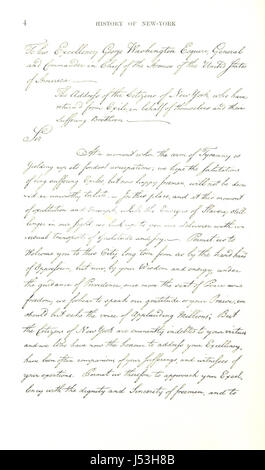 4 HISTORY OF NEW-YORK
To his Excellency George Washington Esquire, General
and Commander in Chief of the Armies of the United States
of America
The Address of the Citizens of New York who have
returned from Exile, in behalf of themselves and their
Suffering Brethren
Sir
At a moment when the arm of Tyranny is
Yielding up its fondest usurpations; we hope the Salutations
of long suffering Exiles, but now happy freemen, will not be deem
ed an unworthy tribute. In this place, and at this moment
of exultation and triumph, while the Ensigns of Slavery still
linger in our sight, we look up to you our deliverer with un
usual transports of Gratitude and Joy. Permit us to
Welcome you to this City, long torn from us by the hard hand
of Oppression, but now by your Wisdom and energy, under
the guidance of Providence, once more the seat of Peace and
freedom, we forbear to speak our gratitude or your Praise, we
should but echo the voice of applauding Millions; But
the Citizens of New York are eminently indebted to your virtues
and we who have now the honour to address your Excellency,
have been often companions of your Sufferings, and witnesses of
your exertions. Permit us therefore to approach your Excel-
lency with the dignity and Sincerity of freemen, and to
alamy stock photo
J53H8B